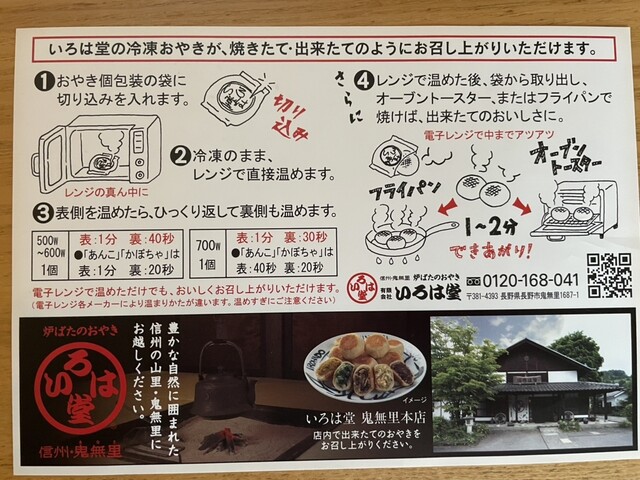 いろは堂の冷凍おやきが、焼きたて・出来たてのようにお召し上がりいただけます。
1 おやき個包装の袋に
切り込みを入れます。
切り込み
レンジの真ん中に
2 冷凍のまま、
レンジで直接温めます。
3 表側を温めたら、ひっくり返して裏側も温めます。
500W
~600W
1個
表:1分 裏:40秒
●「あんこ」「かぼちゃ」は
表:1分 裏:20秒
700W
1個
表:1分 裏:30秒
●「あんこ」「かぼちゃ」は
表:40秒 裏:20秒
電子レンジで温めただけでも、おいしくお召し上がりいただけます。
(電子レンジ各メーカーにより温まりかたが違います。温めすぎにご注意ください)
さらに
4 レンジで温めた後、袋から取り出し、
オーブントースター、またはフライパンで
焼けば、出来たてのおいしさに。
電子レンジで中までアツアツ
フライパン
オーブン
トースター
1~2分
できあがり!
いろは堂
信州・鬼無里 炉ばたのおやき
有限会社 いろは堂
0120-168-041
〒381-4393 長野県長野市鬼無里1687-1
炉ばたのおやき
いろは堂
信州・鬼無里
豊かな自然に囲まれた
信州の山里・鬼無里に
お越しください。
イメージ
いろは堂 鬼無里本店
店内で出来たてのおやきを
お召し上がりください。